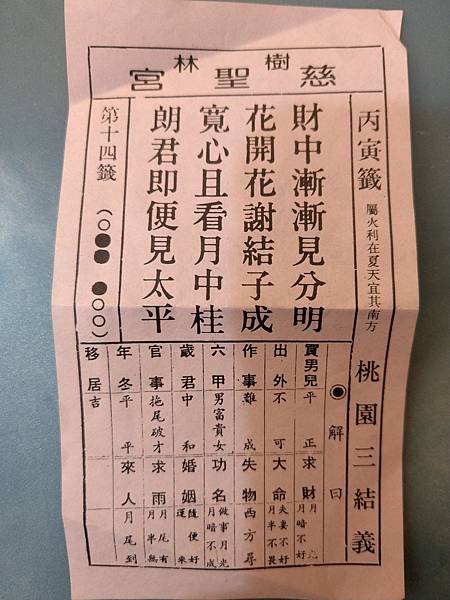 樹林
慈聖宮
丙寅籤 屬火利在夏天宜其南方 桃園三結義
財中漸漸見分明
花開花謝結子成
寬心且看月中桂
朗君即便見太平
第十四籤 (○●● ●○○)
◉解曰
買男兒 平正 求財 月暗不好
出外 不可 大命 夫妻不好 月半不畏
作事 難成 失物 西方尋
六甲 男富貴女 功名 做事月光 月暗不成
歲君 中和 婚姻 隨便好 來
官事 拖尾破才 求雨 月尾有 月半無
年冬 平平 來人 月尾到
移居 吉